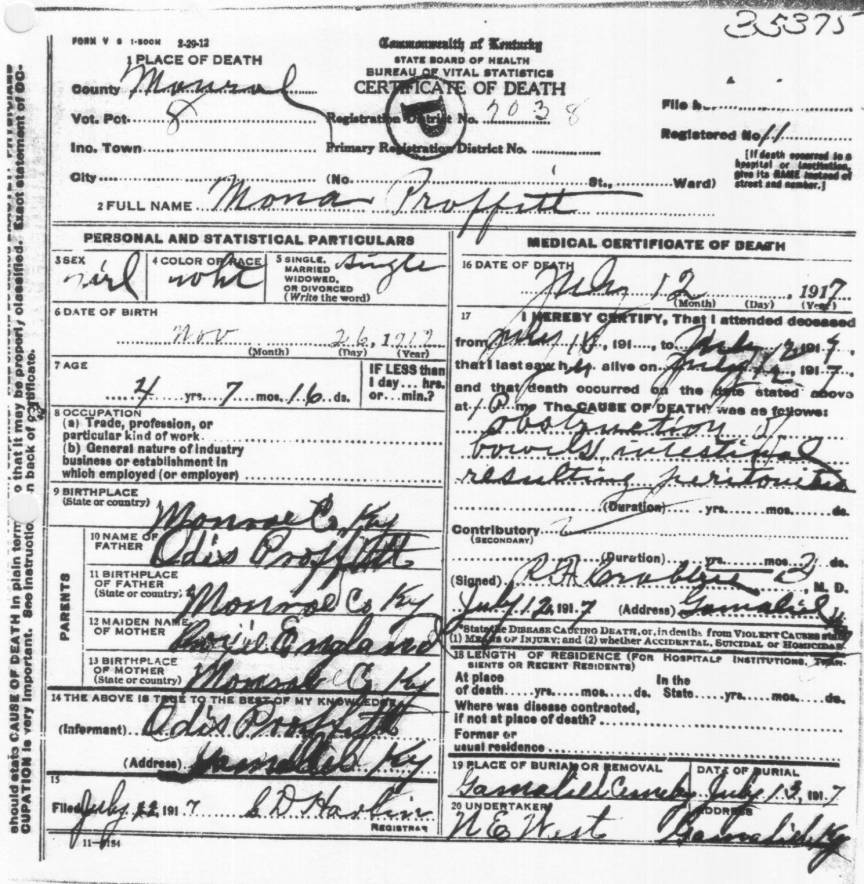 35375
FORM V S 1-500M 2-29-12
Commonwealth of Kentucky
STATE BOARD OF HEALTH
BUREAU OF VITAL STATISTICS
CERTIFICATE OF DEATH
1 PLACE OF DEATH
County Monroe
Vot. Pct. 8
Registration District No. 7038
File
Registered No 11
Inc. Town
Primary Registration District No.
[If death occurred in a hospital or institution, give its NAME instead of street and number.]
City (No. St., Ward)
2 FULL NAME Mona Proffitt
PERSONAL AND STATISTICAL PARTICULARS
3 SEX girl
4 COLOR OR RACE
5 SINGLE, MARRIED WIDOWED, OR DIVORCED (Write the word) Single
6 DATE OF BIRTH
Nov 26, 1912
(Month) (Day) (Year)
7 AGE
4 yrs. 7 mos. 16 ds.
IF LESS than 1 day... hrs. or... min.?
8 OCCUPATION
(a) Trade, profession, or
particular kind of work
(b) General nature of industry
business or establishment in
which employed (or employer)
9 BIRTHPLACE
(State or country)
Monroe Co Ky
PARENTS
10 NAME OF FATHER Odis Proffitt
11 BIRTHPLACE OF FATHER (State or country) Monroe Co Ky
12 MAIDEN NAME OF MOTHER England
13 BIRTHPLACE OF MOTHER (State or country) Monroe Co Ky
14 THE ABOVE IS TRUE TO THE BEST OF MY KNOWLEDGE
(Informant) Odis Proffitt
(Address) Gamaliel Ky
15
Filed July 22 1917 Harlin
REGISTRAR
11-
MEDICAL CERTIFICATE OF DEATH
16 DATE OF DEATH
July 12, 1917
(Month) (Day) (Year)
17 I HEREBY CERTIFY, That I attended deceased
from July 10, 191 , to July 12 1917,
that I last saw h alive on July 12, 1917
and that death occurred on the date stated above
at 1 P m. The CAUSE OF DEATH was as follows:
obstruction of
bowils intestinal
resulting peritonitis
(Duration) yrs. mos. ds.
Contributory
(SECONDARY)
(Duration) yrs. mos. 2 ds.
(Signed) , M. D.
July 12, 1917 (Address) Gamaliel Ky
State the DISEASE CAUSING DEATH, or, in deaths from VIOLENT CAUSES state
(1) MEANS OF INJURY; and (2) whether ACCIDENTAL, SUICIDAL or HOMICIDAL.
18 LENGTH OF RESIDENCE (FOR HOSPITALS INSTITUTIONS, TRAN-
SIENTS OR RECENT RESIDENTS)
At place In the
of death yrs. mos. ds. State yrs. mos. ds.
Where was disease contracted,
if not at place of death?
Former or
usual residence
19 PLACE OF BURIAL OR REMOVAL DATE OF BURIAL
Gamaliel July 13, 1917
20 UNDERTAKER ADDRESS
N E West Gamaliel Ky
should state CAUSE OF DEATH in plain term so that it may be properly classified. Exact statement of OC-
CUPATION is very important. See instruction on back of certificate.